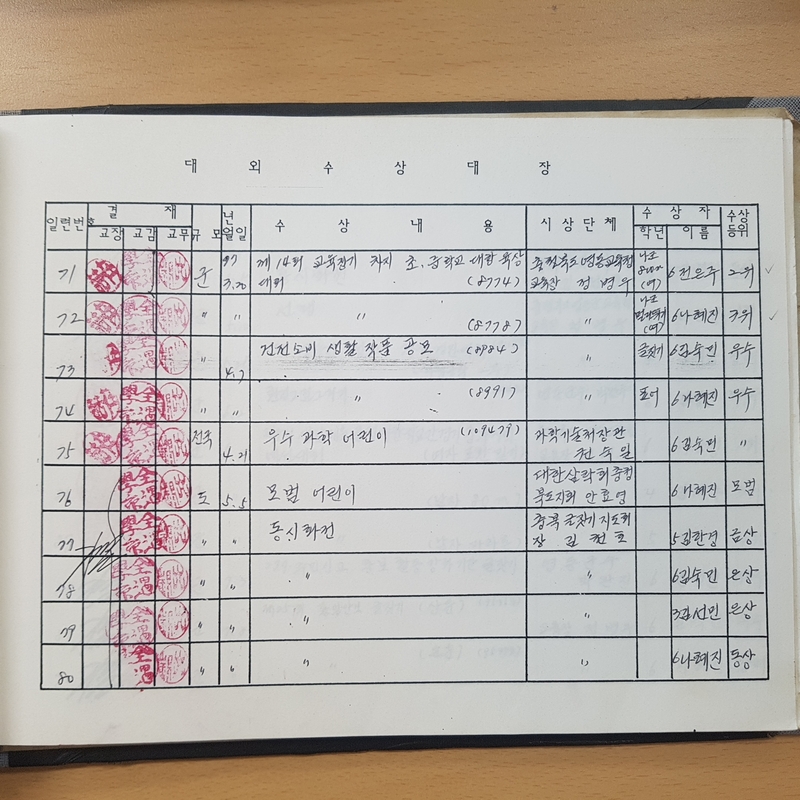 대 외 수 상 대 장
일련번호 결 재 규모 년월일 수 상 내 용 시상단체 수 상 자 수상등위
교장 교감 교무 학년 이름
71 군 97 3.20 제14회 교육장기 차지 초.중학교 대항 육상대회 (8774) 충청북도영동교육청 교육장 정병우 (여) 6 전은주 2위
72 〃 〃 〃 (8778) 〃 (여) 6 나혜진 3위
73 〃 4.7 건전소비 생활 작품 공모 (8984) 〃 글짓기 6 김숙민 우수
74 〃 〃 〃 (8991) 〃 표어 6 나혜진 우수
75 전국 4.21 우수 과학 어린이 (109479) 과학기술처장관 6 김숙민 〃
76 도 5.5 모범 어린이 6 나혜진 모범
77 〃 〃 동시화전 충북글짓기지도회장 5 김한경 금상
78 〃 〃 〃 〃 6 김숙민 은상
79 〃 〃 〃 〃 3 김선민 은상
80 〃 〃 〃 〃 6 나혜진 동상